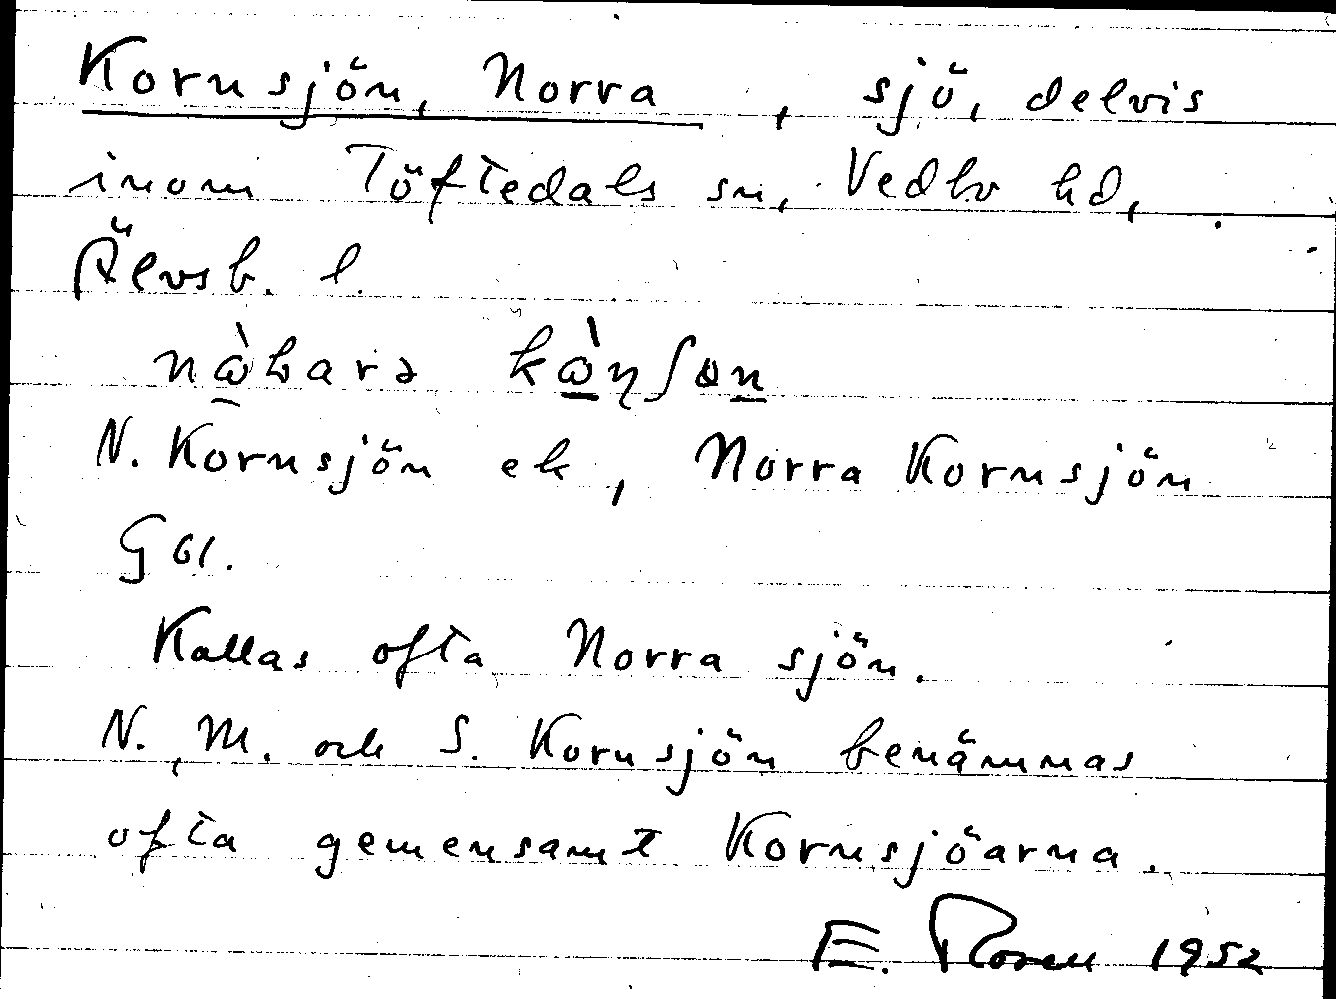 Kornsjön, Norra, sjö, delvis
inom Töftedals sn, Vedbo hd,
Älvsb. l.
N. Kornsjön ek, Norra Kornsjön
GGI.
Kallas ofta Norra sjön.
N., M. och S. Kornsjön benämnas
ofta gemensamt Kornsjöarna.
E. Rosell 1952